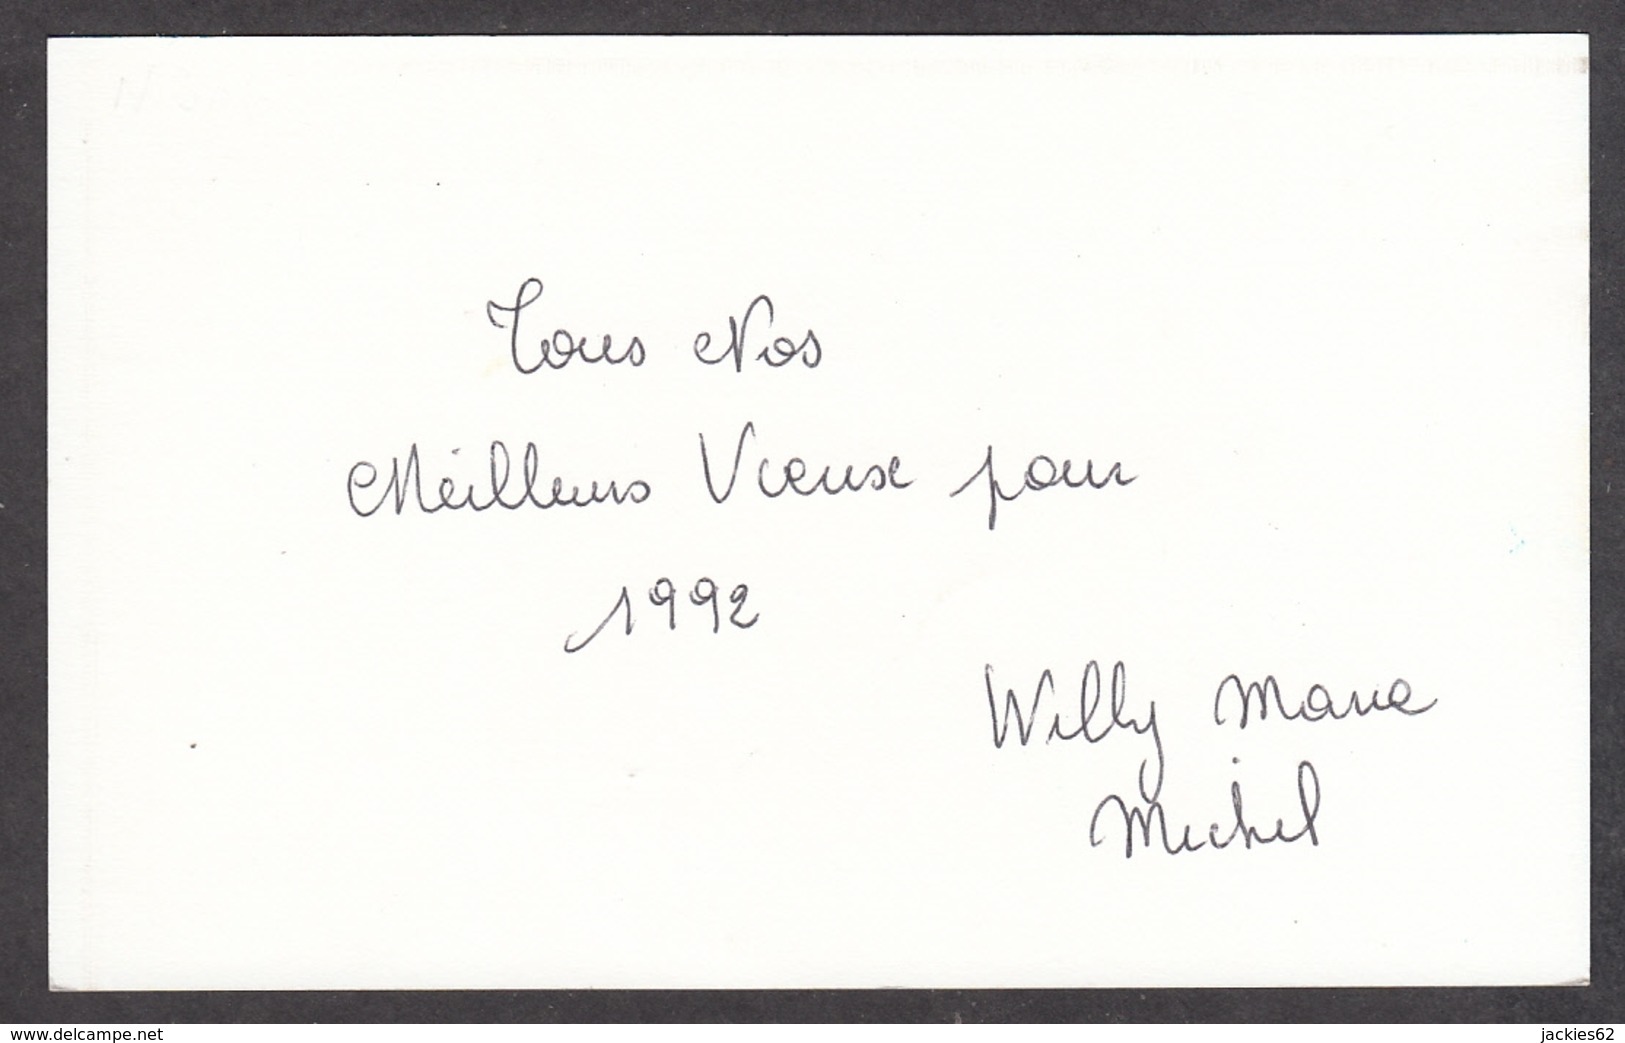 Tous Nos
Meilleurs Vieux pour
1992
Willy Marie
Michel
www.delcampe.net
jackies62